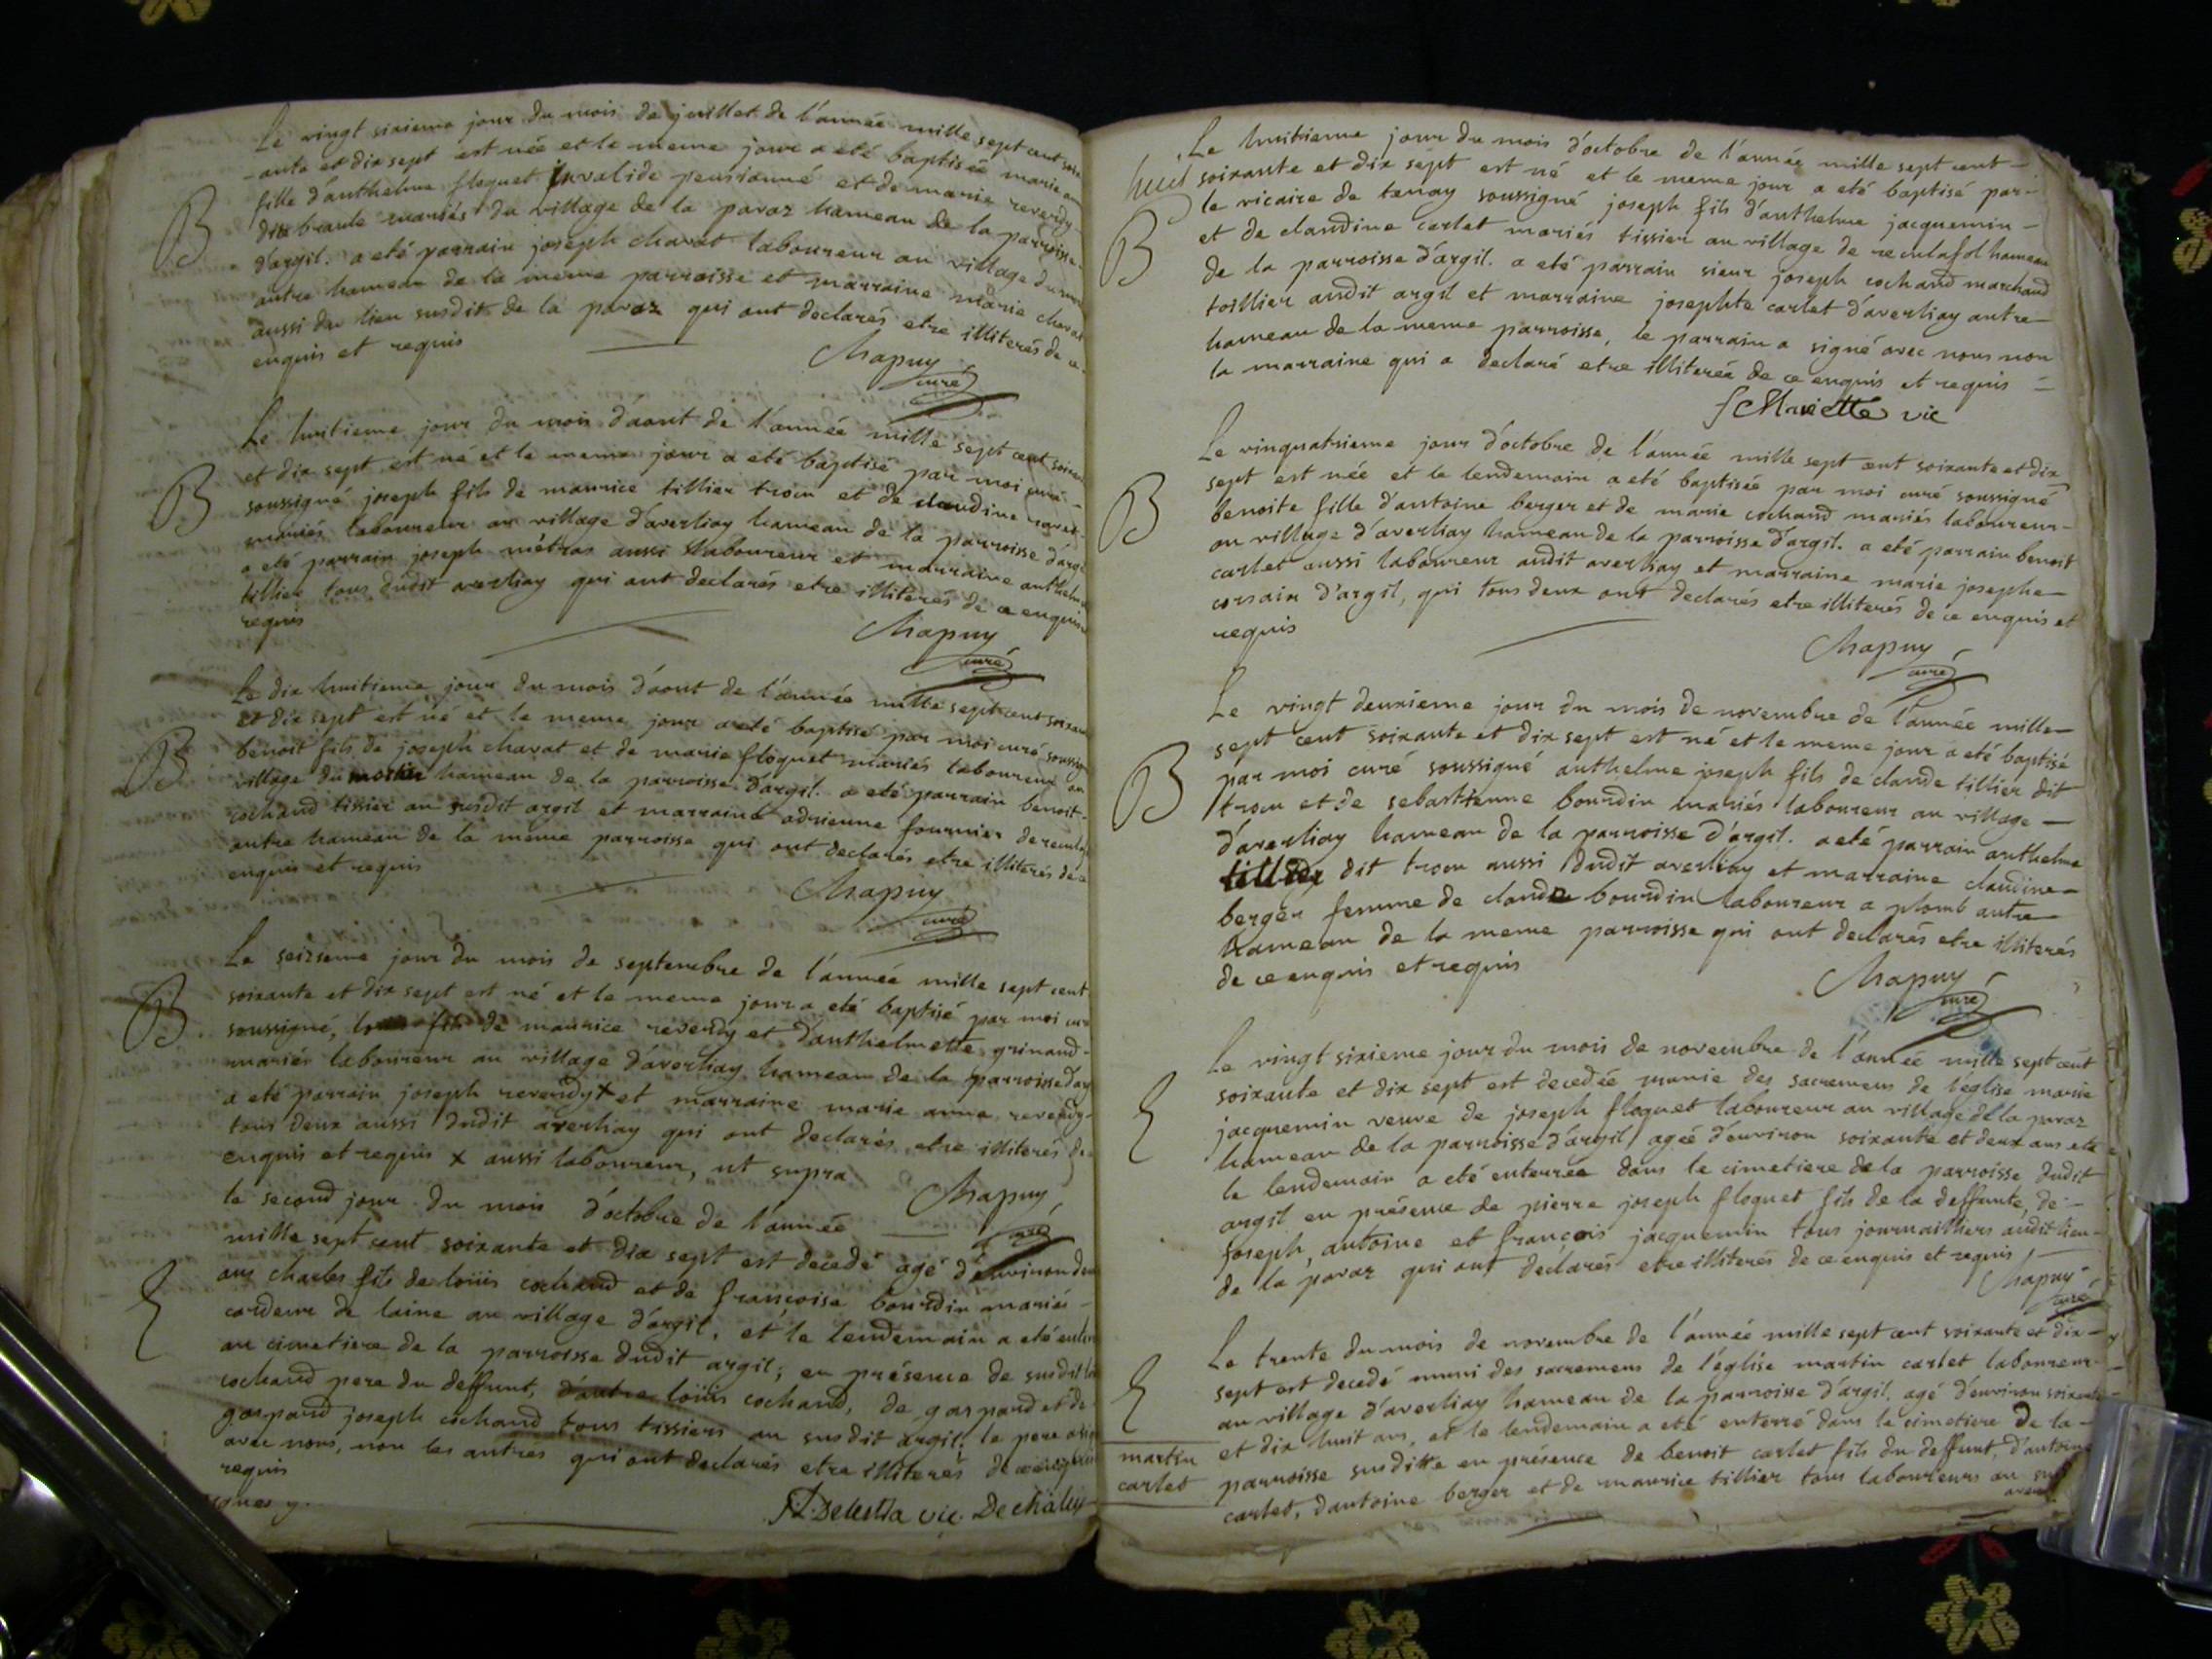 Le vingt sixieme jour du mois de juillet de l'année mille sept cent soix
-ante et dix sept est née et le meme jour a eté baptisée marie
fille d'anthelme floquet invalide pensionné et de marie reverdy
mariés du village de la pavaz hameau de la parroisse
d'argil. a eté parrain joseph chavat laboureur au village du
autre hameau de la meme parroisse et marraine marie chavat
aussi du lieu susdit de la pavaz qui ont declarés etre illiterés de ce
enquis et requis
Chapuy
curé
B
Le huitieme jour du mois d'aout de l'année mille sept cent soixan
et dix sept est né et le meme jour a eté baptisé par moi curé
soussigné joseph fils de maurice tillier trocu et de claudine
mariés laboureur au village d'averliay hameau de la parroisse d'argil
a eté parrain joseph métras aussi laboureur et marraine anthelm
tillier tous dudit averliay qui ont declarés etre illiterés de ce enquis
requis
Chapuy
curé
B
Le dix huitieme jour du mois d'aout de l'année mille sept cent soixan
et dix sept est né et le meme jour a eté baptisé par moi curé soussig
benoit fils de joseph chavat et de marie floquet mariés laboureur au
village du hameau de la parroisse d'argil. a eté parrain benoit
cochand tissier au susdit argil et marraine adrienne fournier de
autre hameau de la meme parroisse qui ont declarés etre illiterés de ce
enquis et requis
Chapuy
curé
B
Le seizieme jour du mois de septembre de l'année mille sept cent
soixante et dix sept est né et le meme jour a eté baptisé par moi
soussigné, fils de maurice reverdy et d'anthelmette grinand
mariés laboureur au village d'averliay hameau de la parroisse d'arg
a eté parrain joseph reverdy x et marraine marie anne reverdy
tous deux aussi dudit averliay qui ont declarés etre illiterés de
enquis et requis x aussi laboureur, ut supra
Chapuy
curé
B
le second jour du mois d'octobre de l'année
mille sept cent soixante et dix sept est decedé agé d'environ
ans charles fils de loüis cochand et de françoise bourdin mariés
cardeur de laine au village d'argil, et le lendemain a eté
au cimetiere de la parroisse dudit argil; en présence de susdit
cochand pere du deffunt, d'autre loüis cochand, de gaspard et de
gaspard joseph cochand tous tissiers au susdit argil. le pere a
avec nous, non les autres qui ont declarés etre illiterés de ce enquis
requis
vic. Dechaley
Le huitieme jour du mois d'octobre de l'année mille sept cent
soixante et dix sept est né et le meme jour a eté baptisé par
le vicaire de tenay soussigné joseph fils d'anthelme jacquemin
et de claudine carlet mariés tissier au village de reculafol hameau
de la parroisse d'argil. a eté parrain sieur joseph cochand marchand
toillier audit argil et marraine josephte carlet d'averliay autre
hameau de la meme parroisse, le parrain a signé avec nous non
la marraine qui a declaré etre illiterée de ce enquis et requis
vic
B
Le vinquatrieme jour d'octobre de l'année mille sept cent soixante et dix
sept est née et le lendemain a eté baptisée par moi curé soussigné
benoite fille d'antoine berger et de marie cochand mariés laboureur
au village d'averliay hameau de la parroisse d'argil. a eté parrain benoit
carlet aussi laboureur audit averliay et marraine marie josephe
corsain d'argil, qui tous deux ont declarés etre illiterés de ce enquis et
requis
Chapuy
curé
B
Le vingt deuxieme jour du mois de novembre de l'année mille
sept cent soixante et dix sept est né et le meme jour a eté baptisé
par moi curé soussigné anthelme joseph fils de claude tillier dit
trocu et de sebastienne bourdin mariés laboureur au village
d'averliay hameau de la parroisse d'argil. a eté parrain anthelme
tillier dit trocu aussi dudit averliay et marraine claudine
berger femme de claude bourdin laboureur a plomb autre
hameau de la meme parroisse qui ont declarés etre illiterés
de ce enquis et requis
Chapuy
curé
B
Le vingt sixieme jour du mois de novembre de l'année mille sept cent
soixante et dix sept est decedée munie des sacremens de l'eglise marie
jacquemin veuve de joseph floquet laboureur au village de la pavaz
hameau de la parroisse d'argil, agée d'environ soixante et deux ans
le lendemain a eté enterrée dans le cimetiere de la parroisse dudit
argil en présence de pierre joseph floquet fils de la deffunte, de
joseph, antoine et françois jacquemin tous journailliers audit lieu
de la pavaz qui ont declarés etre illiterés de ce enquis et requis
Chapuy
curé
Le trente du mois de novembre de l'année mille sept cent soixante et dix
sept est decedé muni des sacremens de l'église martin carlet laboureur
au village d'averliay hameau de la parroisse d'argil. agé d'environ soixante
et dix huit ans, et le lendemain a eté enterré dans le cimetiere de la
parroisse susditte en présence de benoit carlet fils du deffunt, d'antoine
carlet, d'antoine berger et de maurice tillier tous laboureurs au
martin
carlet